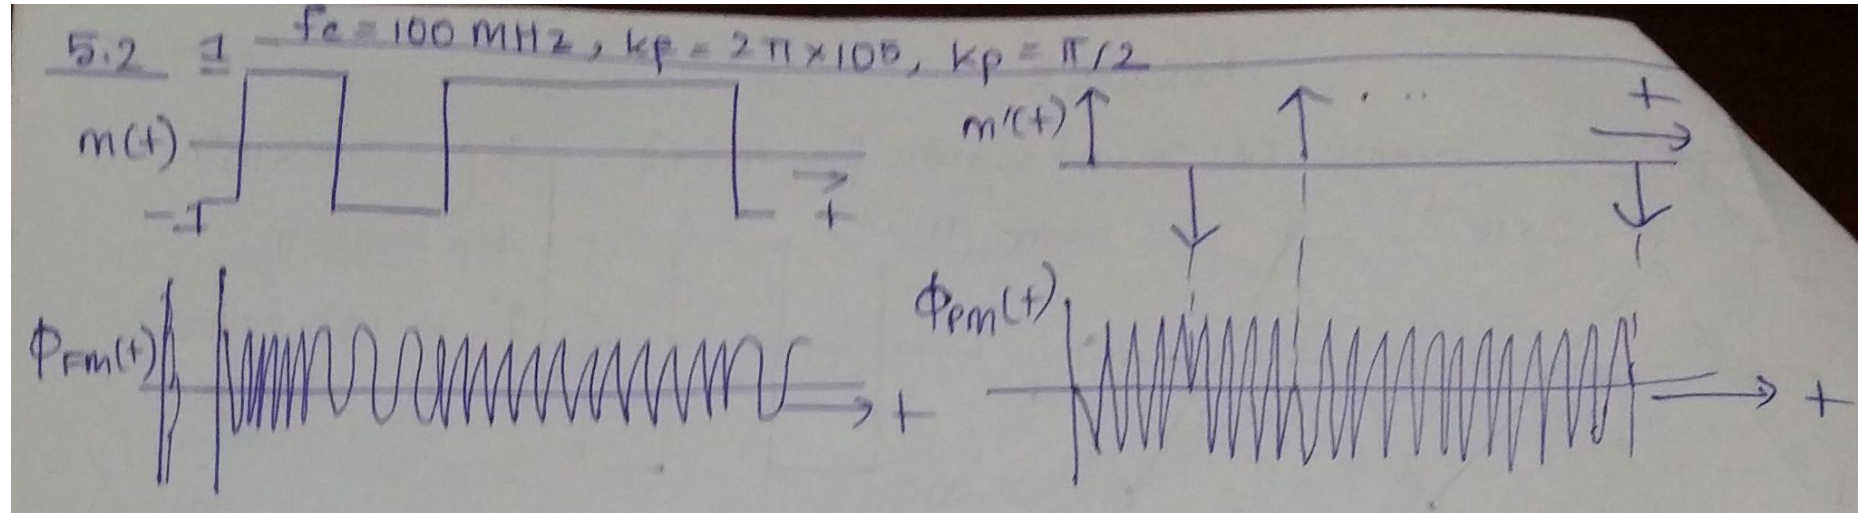 5.2 1 fc = 100 MHz, kf = 2π×105, kp = π/2
m(t) -1 t
m'(t) . .. t
φFm(t) t
φPm(t) t